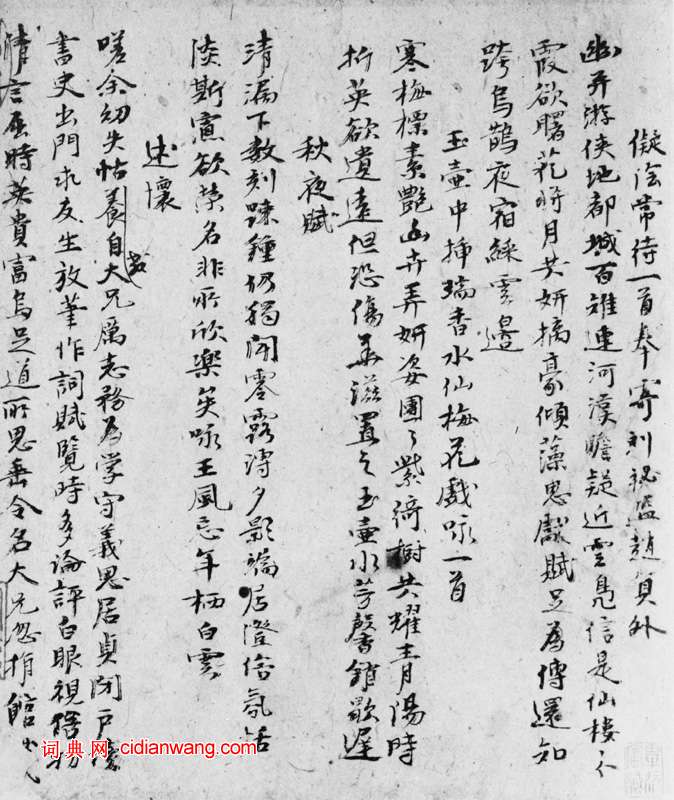 儗陰常侍一首奉寄刘秘監趙員外
幽并游俠地都城百雉連河漢瞻疑近雲鳧信是仙樓分
霞欲曙花將月共妍摛豪傾藻思獻賦足為傳還知
跨烏鵲夜宿綵雲邊
玉壺中插瑞香水仙梅花戲咏一首
寒梅標素艷幽卉弄妍姿團々紫綺樹共耀青陽時
折英欲遺遠但恐傷華滋置之玉壺水芳馨銷歇遲
秋夜賦
清漏下數刻疎鍾仍獨聞零露漙夕影端居澄俗氛恬
淡斯寡欲榮名非所欣樂矣咏王風忘年栖白雲
述懷
嗟余幼失怙養育自大兄厲志務為学守義思居貞閉戶讀
書史出門求友生放筆作詞賦覽時多論評白眼視俗物
清言屈時英貴富烏足道所思垂令名大兄忽捐館
词典网:cidianwang.com